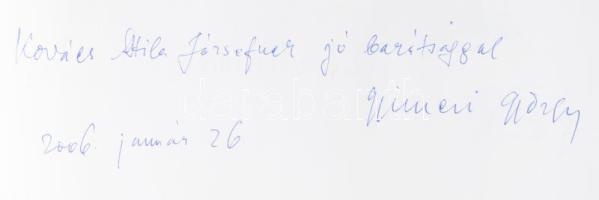 Kovács Attila Józsefnek jó barátsággal
Gyimesi György
2006. január 26
darabanth